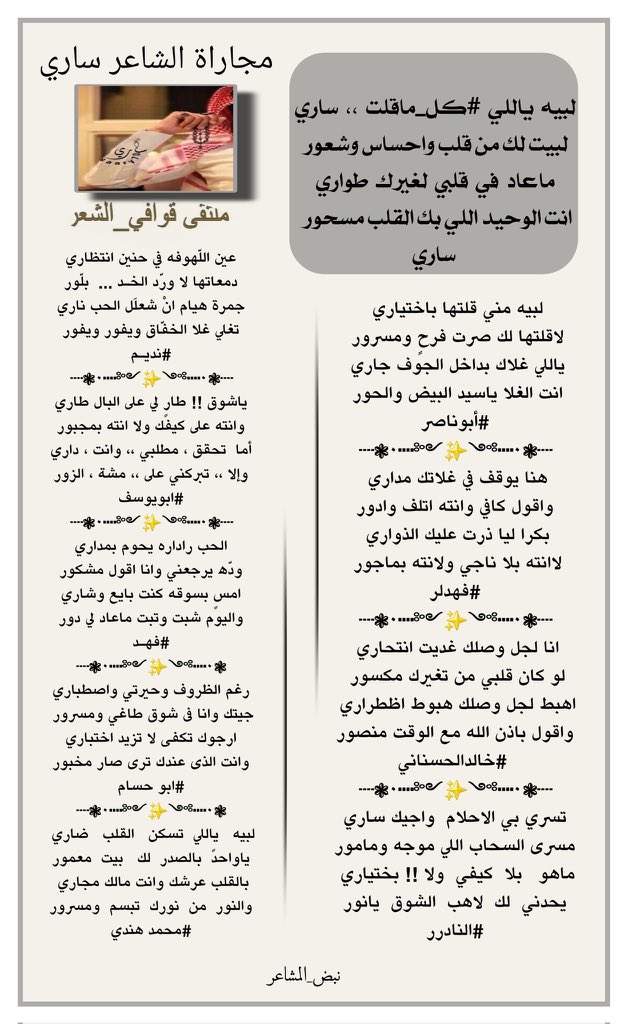 مجاراة الشاعر ساري
ملتقى قوافي_الشعر
لبيه ياللي #كل_ماقلت ،، ساري
لبيت لك من قلب واحساس وشعور
ماعاد في قلبي لغيرك طواري
انت الوحيد اللي بك القلب مسحور
ساري
لبيه مني قلتها باختياري
لاقلتها لك صرت فرحٍ ومسرور
ياللي غلاك بداخل الجوف جاري
انت الغلا ياسيد البيض والحور
#أبوناصر
هنا يوقف في غلاتك مداري
واقول كافي وانته اتلف وادور
بكرا ليا ذرت عليك الذواري
لاانته بلا ناجي ولانته بماجور
#فهدلر
انا لجل وصلك غديت انتحاري
لو كان قلبي من تغيرك مكسور
اهبط لجل وصلك هبوط اظطراري
واقول باذن الله مع الوقت منصور
#خالدالحسناني
تسري بي الاحلام واجيك ساري
مسرى السحاب اللي موجه ومامور
ماهو بلا كيفي ولا !! بختياري
يحدني لك لاهب الشوق يانور
#النادرر
عين اللّهوفه في حنين انتظاري
دمعاتها لا ورّد الخــد ... بلّور
جمرة هيام انْ شعلَل الحب ناري
تغلي غلا الخفّاق ويفور ويفور
#نديـم
ياشوق !! طار لي على البال طاري
وانته على كيفك ولا انته بمجبور
أما تحقق ، مطلبي ،، وانت ، داري
وإلا ،، تبركني على ،، مشة ، الزور
#ابويوسف
الحب راداره يحوم بمداري
ودّه يرجعني وانا اقول مشكور
امسٍ بسوقه كنت بايع وشاري
واليومٍ شبت وتبت ماعاد لي دور
#فهـد
رغم الظروف وحيرتي واصطباري
جيتك وانا فى شوق طاغي ومسرور
ارجوك تكفى لا تزيد اختباري
وانت الذى عندك ترى صار مخبور
#ابو حسام
لبيه ياللي تسكن القلب ضاري
ياواحدً بالصدر لك بيت معمور
بالقلب عرشك وانت مالك مجاري
والنور من نورك تبسم ومسرور
#محمد هندي
نبض_المشاعر